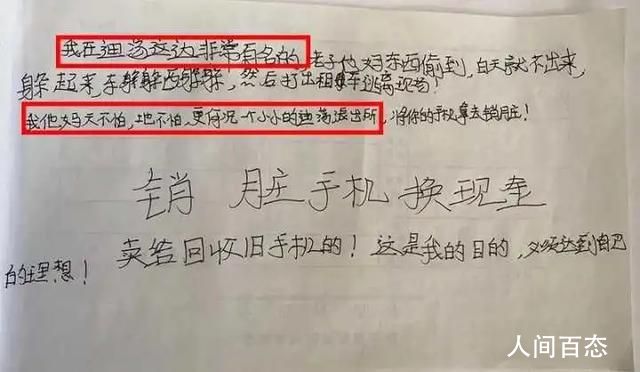 我在迪荡这达非常有名的，老子他妈东西偷到，白天就不出来，
躲起来，东躲躲西躲躲，然后打出租车逃离现场！
我他妈天不怕，地不怕，更何况一个小小的迪荡派出所，将你的手机拿去销脏！
销 脏手机 换现金
卖给回收旧手机的！这是我的目的，必须达到自己
的理想！
人间百态